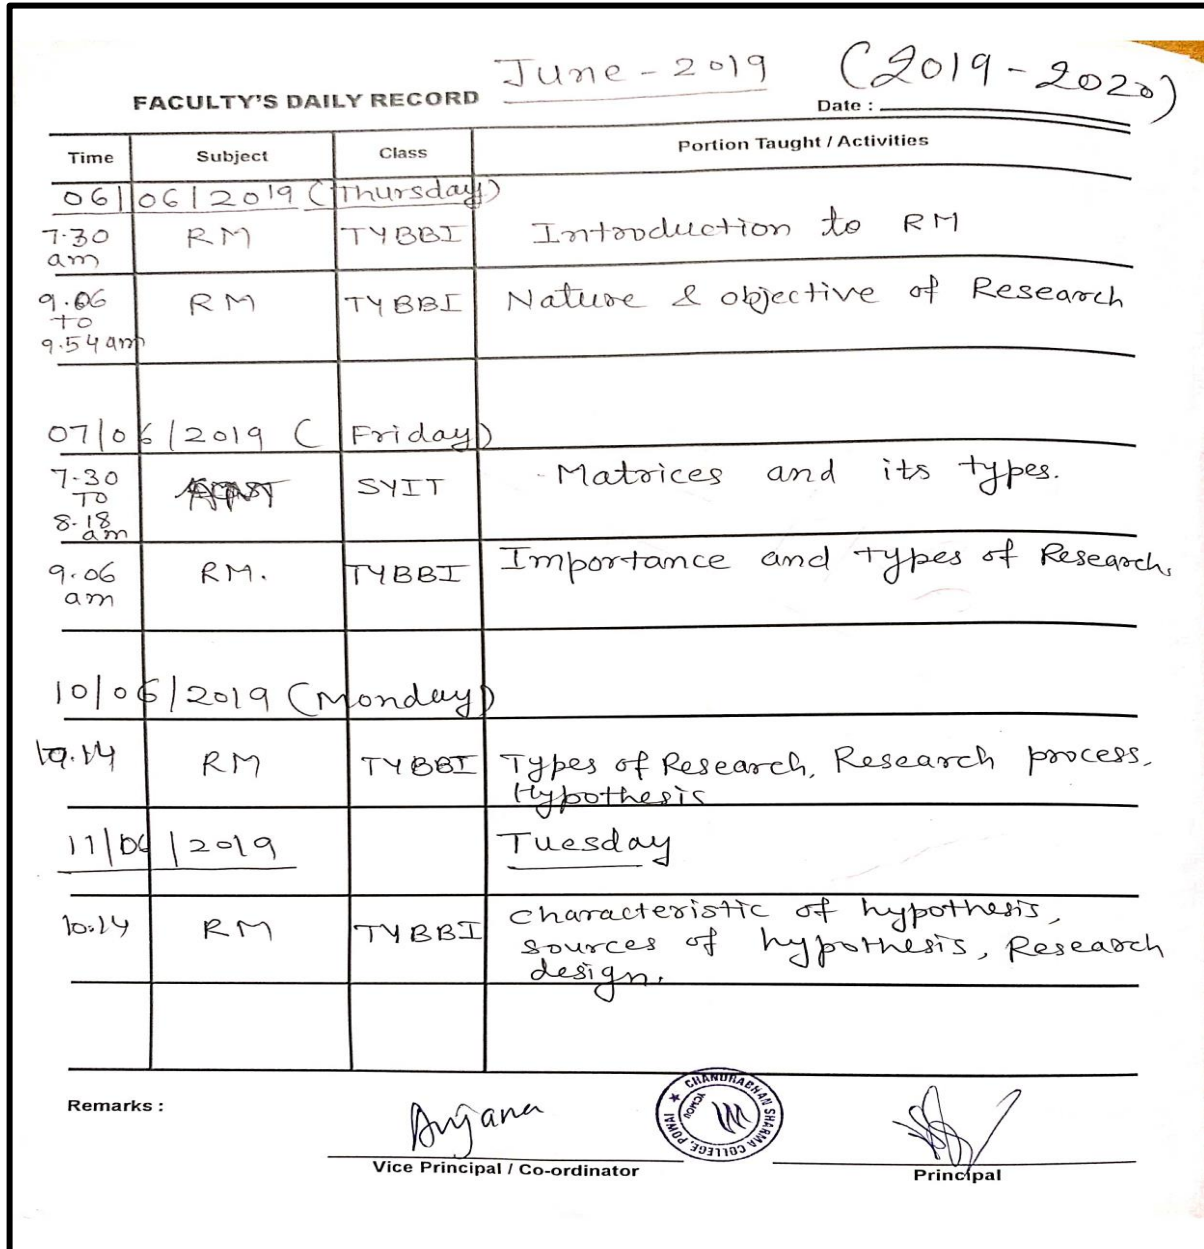 June - 2019 (2019 - 2020)
FACULTY'S DAILY RECORD Date :
Time Subject Class Portion Taught / Activities
06/06/2019 (Thursday)
7.30 am RM TYBBI Introduction to RM
9.06 TO 9.54 am RM TYBBI Nature & objective of Research
07/06/2019 (Friday)
7.30 TO 8.18 am SYIT Matrices and its types.
9.06 am RM. TYBBI Importance and types of Research.
10/06/2019 (Monday)
10.14 RM TYBBI Types of Research, Research process,
Hypothesis
11/06/2019 Tuesday
10.14 RM TYBBI characteristic of hypothesis,
sources of hypothesis, Research
design.
Remarks :
Anjana
CHANDRABHAN SHARMA COLLEGE, POWAI
Vice Principal / Co-ordinator Principal